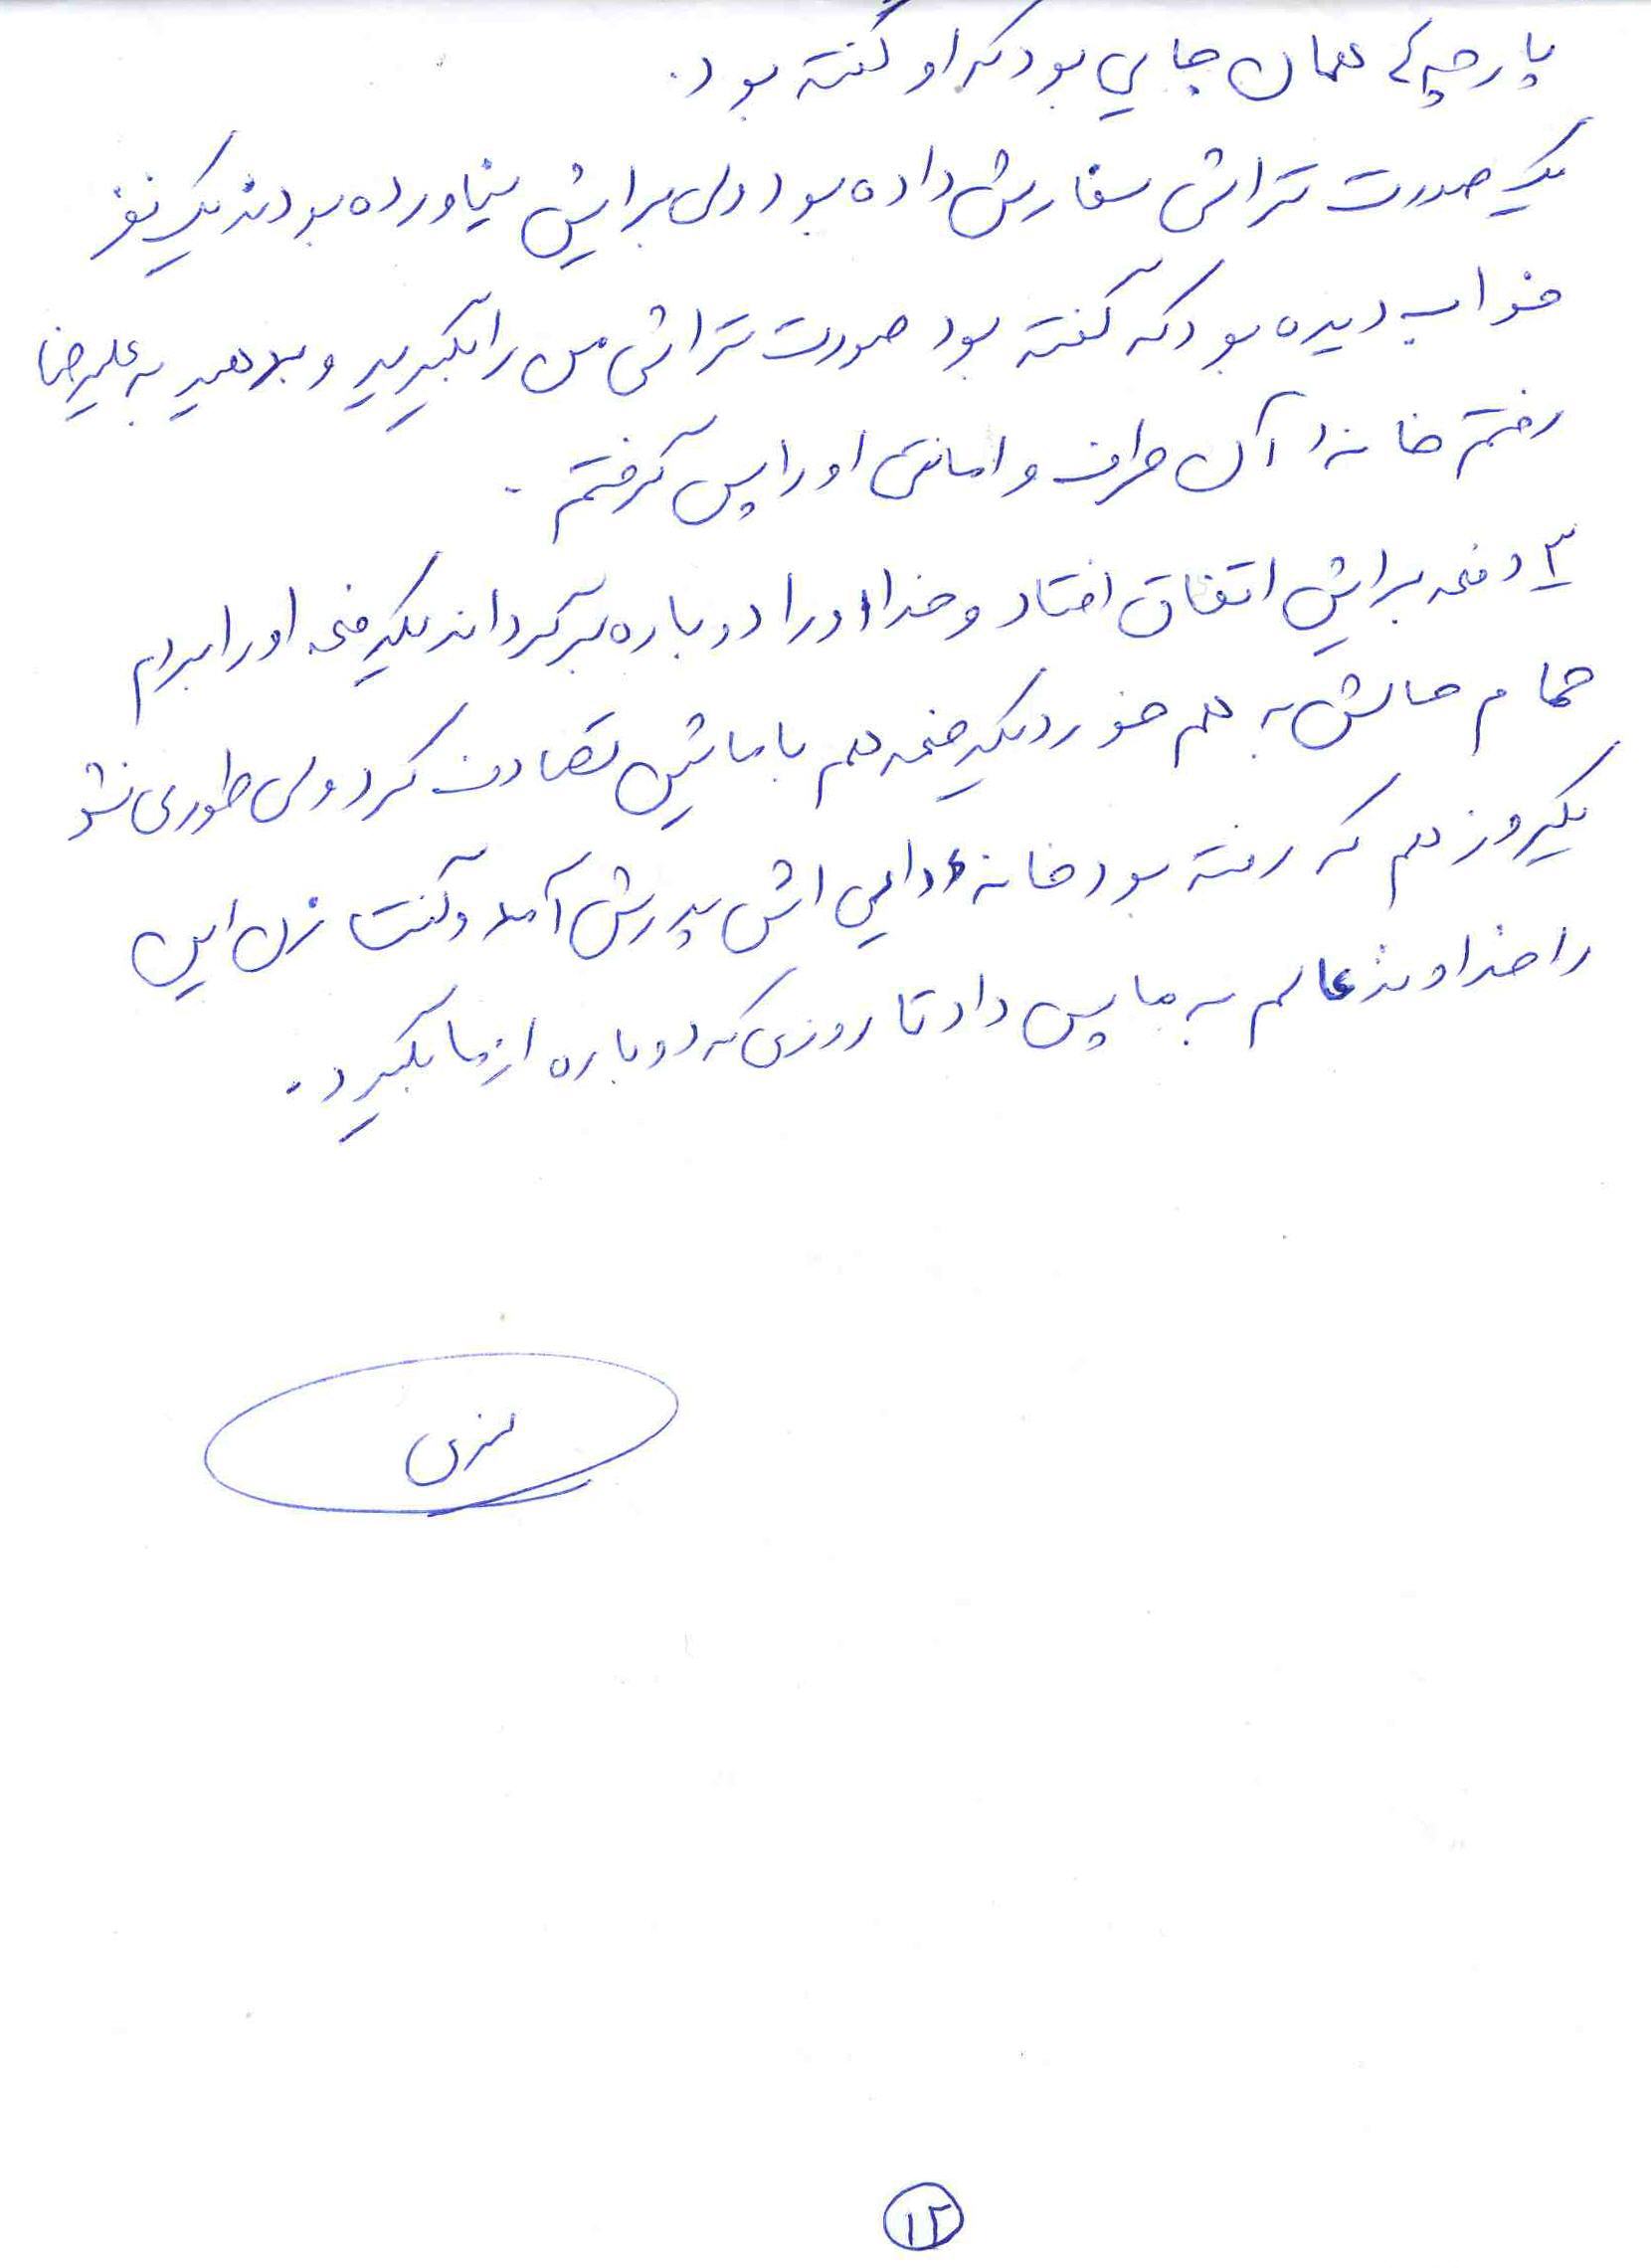 پارچه ی همان جایی بود که او گفته بود.
یک صورت تراش سفارش داده بود ولی برایش نیاورده بودند یک نفر
خواب دیده بود که گفته بود صورت تراش من را بگیرید و بدهید به علیرضا
رفتم خانه ی آن طرف و امانتی او را پس گرفتم.
۳ دفعه برایش اتفاق افتاد و خدا او را دوباره برگرداند یکدفعه او را بردم
حمام حالش به هم خورد یکدفعه هم با ماشین تصادف کرد ولی طوری نشد
یکروز هم که رفته بود خانه دایی اش پدرش آمد و گفت زن این
را خداوند عالم به ما پس داد تا روزی که دوباره از ما بگیرد.
۱۲